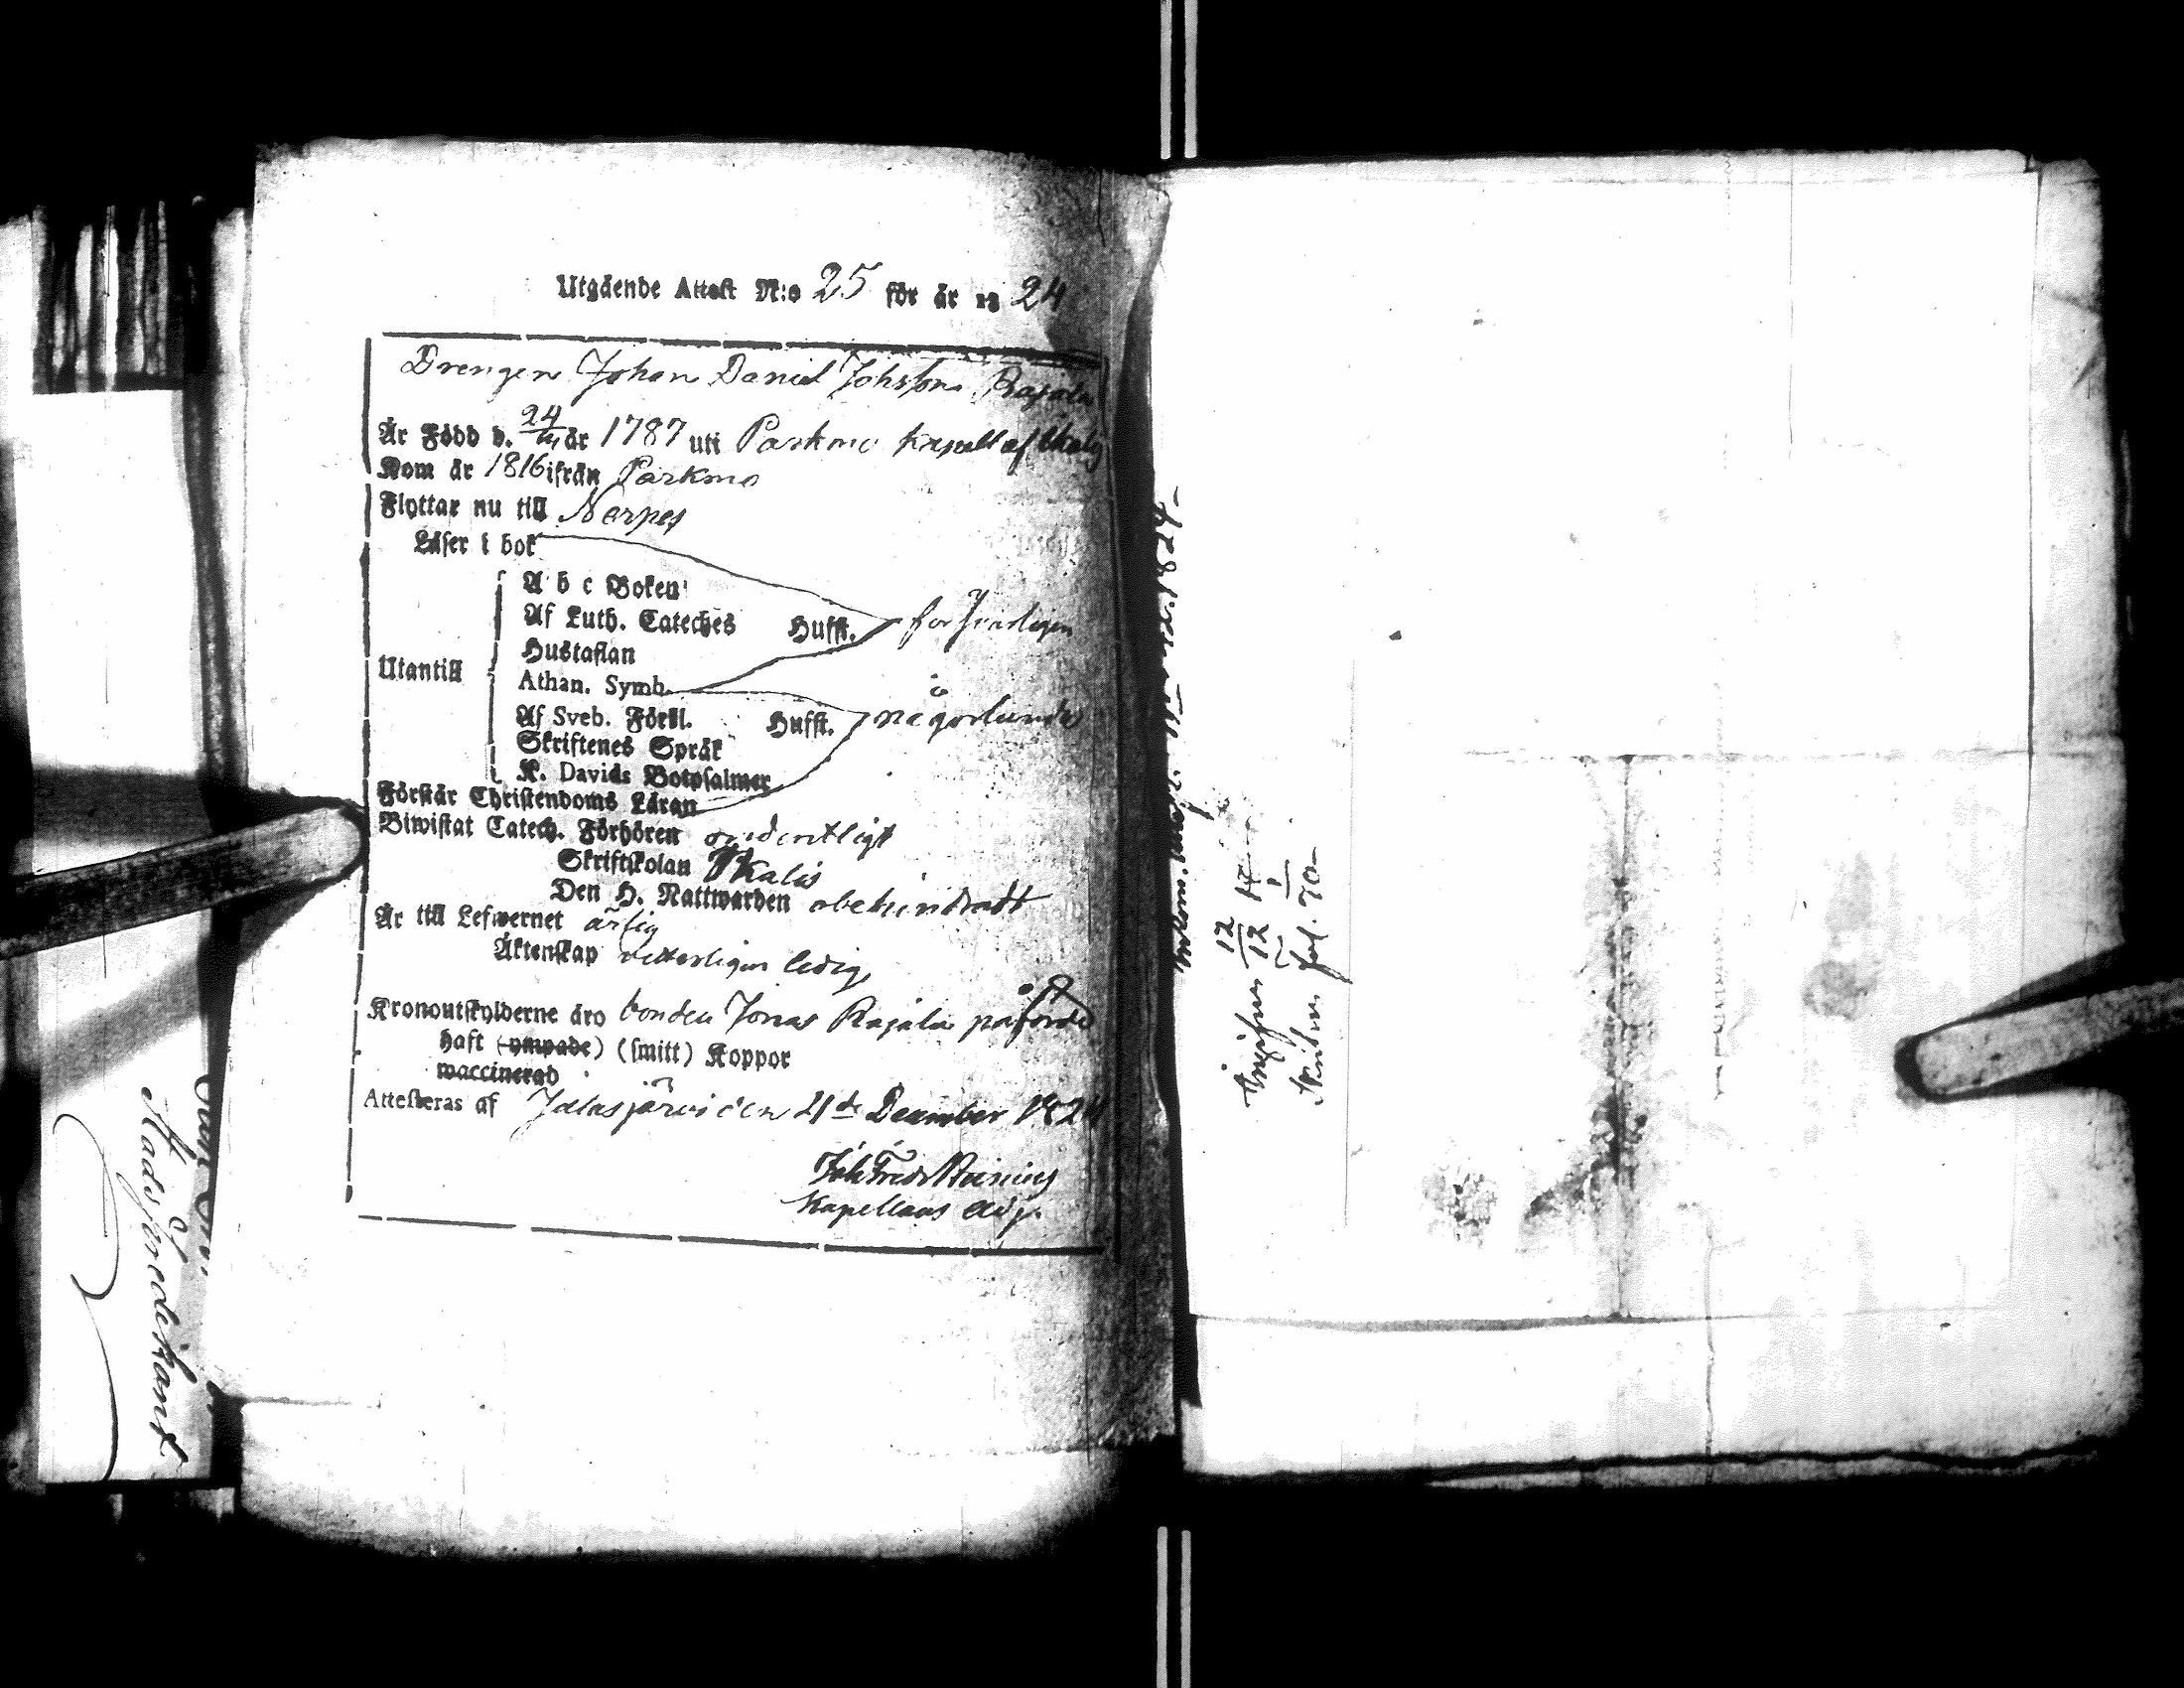 Utgående Attest N:o 25 för år 18 24
Drengen Johan Daniel Johsson Rajala
Är Född d. 24/11 år 1787 uti Parkmo kapell af Ikalis
Kom år 1816 ifrån Parkmo
Flyttar nu till Nerpes
Läser i bok
A b c Boken
Af Luth. Cateches Hufft. försvarligen
Hustaflan
Utantill
Athan. Symb.
Af Sveb. Förkl. Hufft. någorlunda
Skriftenes Språk
K. Davids Botpsalmer
Förstår Christendoms Läran
Biwistat Catech. Förhören ordentligt
Skriftskolan Ikalis
Den H. Nattwarden obehindradt
Är till Lefwernet ärlig
Äktenskap vetterligen ledig,
Kronoutskylderne äro bonden Jonas Rajala påförde
haft (ympade) (smitt) Koppor
waccinerad
Attesteras af Jalasjärvi den 21de December 1824
Joh Fredr
Kapellans Adj.
12/12
fol. 70